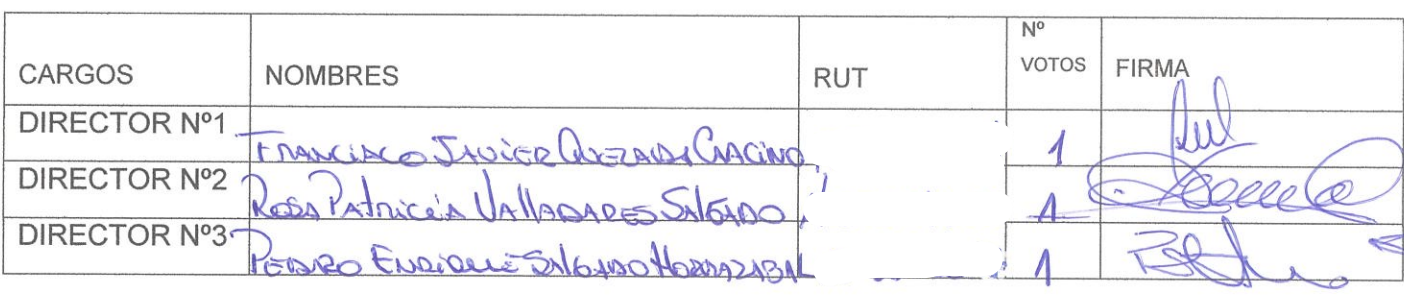 CARGOS NOMBRES RUT Nº VOTOS FIRMA
DIRECTOR Nº1 FRANCISCO JAVIER QUEZADA 1
DIRECTOR Nº2 ROSA PATRICIA VALLADARES SALGADO 1
DIRECTOR Nº3 PEDRO ENRIQUE SALGADO HORMAZABAL 1